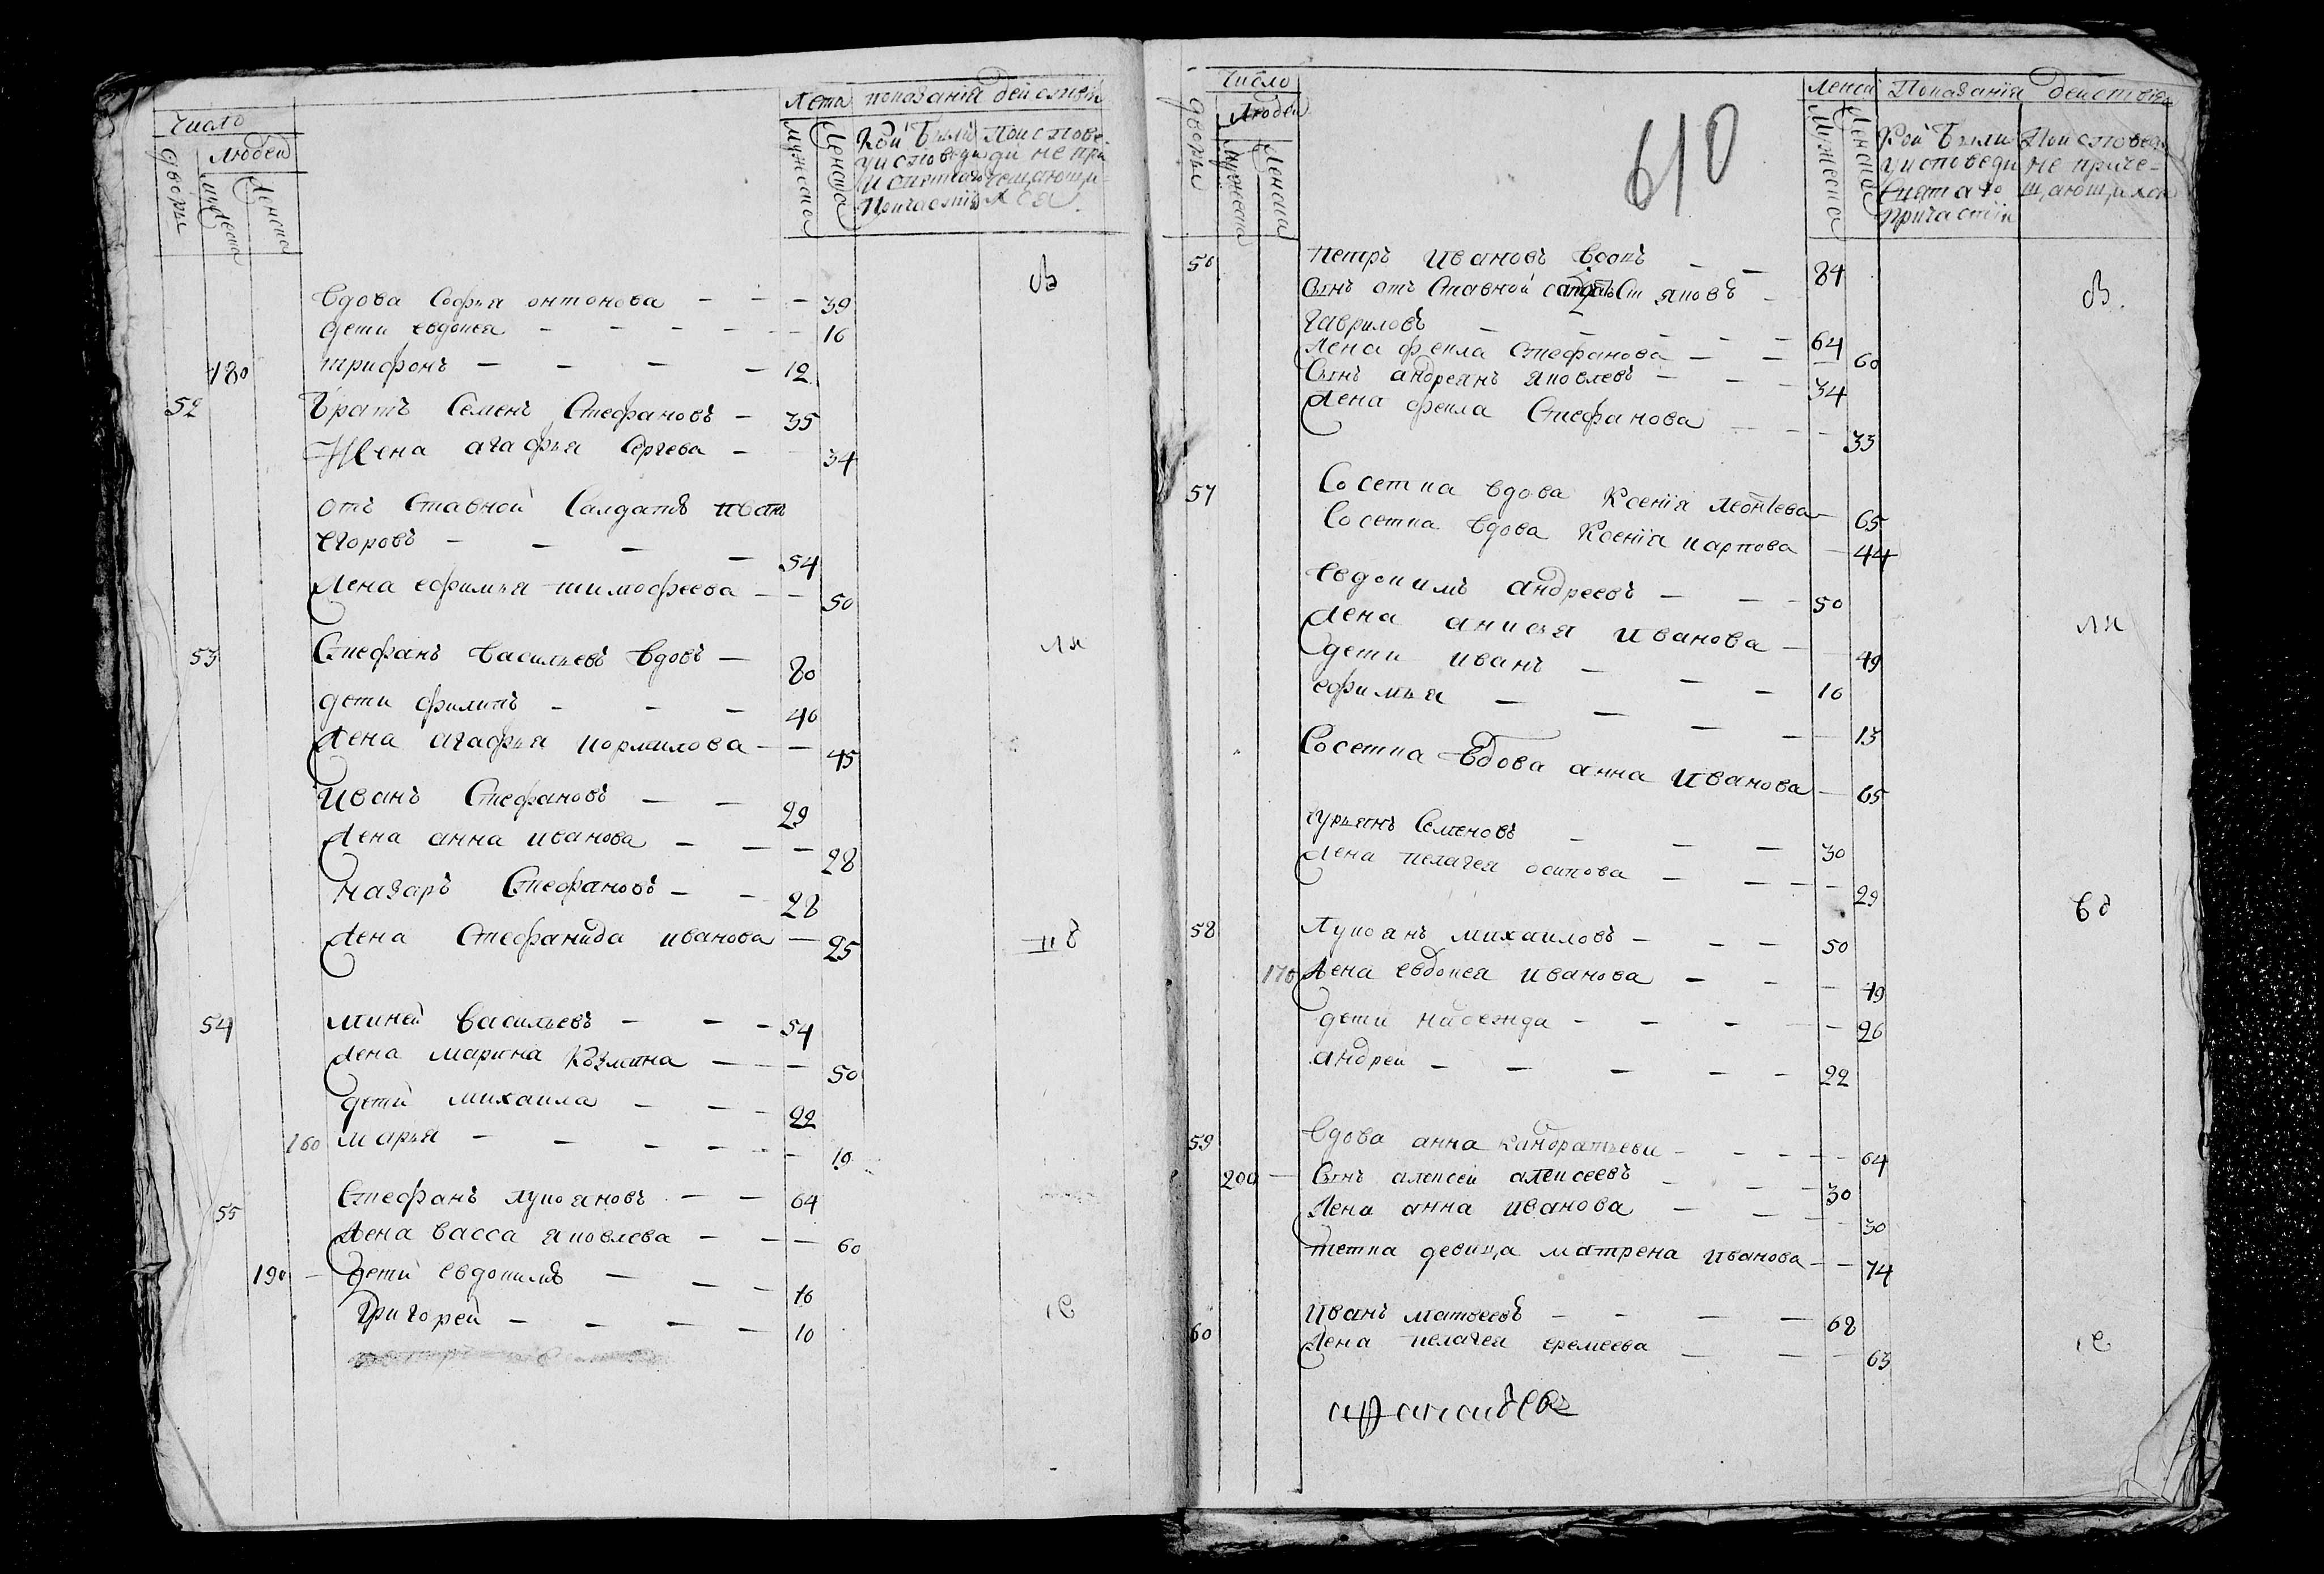 Число
Людей
дворы
мужеска
женска
Лета
показания действи
мужеска
женска
Кои были
у исповеди
и святаго
Причастия
По испове
ди не при
чещающи
ся
ов
вдова Софья онтонова — — — 39
дети евдокея — — — — — 16
180 трифонъ — — — — 12
52 братъ Семенъ Стефановъ — 35
Жена агафья Сергева — 34
отъ Ставной Салдатъ иванъ
Егоровъ — — — — 54
Жена ефимья тимофеева — — 50
53 Стефанъ васильевъ вдовъ — 80
дети филипъ — — — 46
Жена агафья кормилова — — 45
Иванъ Стефановъ — — 29
Жена анна иванова — — — 28
назаръ Стефановъ — — 28
Жена Стефанида иванова — 25
54 миней васильевъ — — — 54
Жена марина Козмина — — — 50
дети михаила — — — 22
160 марья — — — — — — 19
55 Стефанъ лукояновъ — — 64
Жена васса яковлева — — — 60
190 — дети евдокимъ — — — 16
Григорей — — — — 10
Число
Людей
дворы
мужеска
женска
610
Показания действи
Мужеска
Женска
Кои были
у исповеди
Святаго
причастия
По исповеди
не приче-
щающихся
56 петръ ивановъ вдовъ — — 84
ов.
Сынъ отъ Ставной
Гавриловъ — — — — — 64
Жена фекла Стефанова — — — 60
Сынъ андреянъ яковлевъ — — — 34
Жена фекла Стефанова — — — 33
57 Сосетка вдова Ксения Леонтева — 65
Сосетка вдова Ксения карпова — 44
Евдокимъ андреевъ — — — 50
Жена анисья иванова — 49
дети иванъ — — — 16
ефимья — — — — 13
Сосетка вдова анна иванова — 65
гурьянъ Семеновъ — — — 30
Жена пелагея осипова — — — — 29
вд
58 Лукоянъ михаиловъ — — — 50
170 Жена евдокея иванова — — — 49
дети надежда — — — — — 26
андрей — — — — — 22
59 вдова анна кандратьеви — — — — — 64
200 — Сынъ алексей алексеевъ — — — 30
Жена анна иванова — — — — 30
тетка девица матрена иванова — — 74
60 иванъ матвеевъ — — — — 68
Жена пелагея еремеева — — — 63